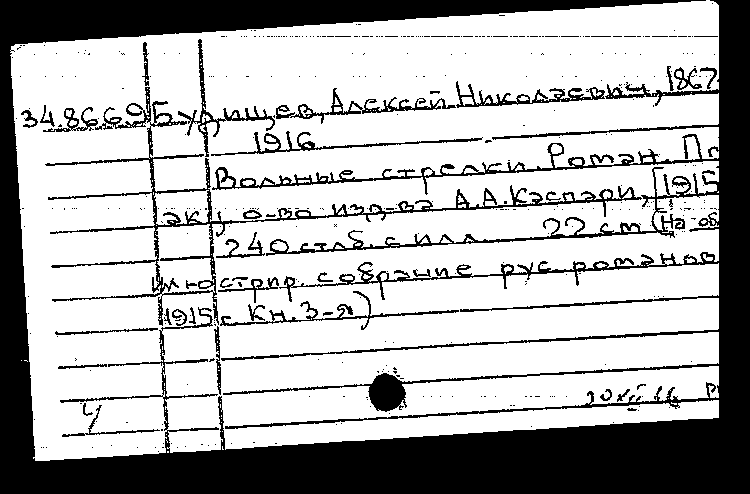 34.8669 Будищев, Алексей Николаевич, 1867
1916
Вольные стрелки. Роман. Пг
акц. о-во изд-ва А.А.Каспари, [1915
240 стлб. с илл. 22 cm (На об
Иллюстрир. собрание рус. романов
1915 г. Кн. 3-я)